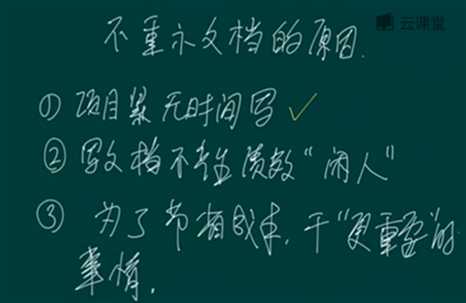 云课堂
不重永文档的原因.
① 项目紧无时间写 ✓
② 写文档不产生质效“闲人”
③ 为了节省成本,干“更重要”的
事情.